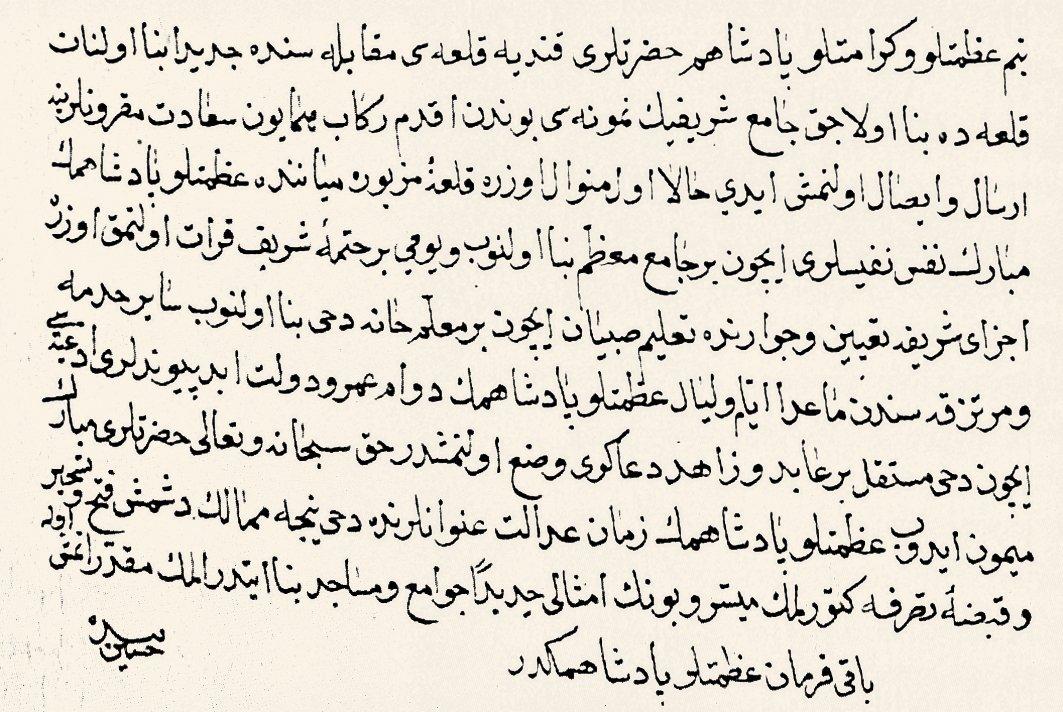 بنم عظمتلو وكرامتلو پادشاهم حضرتلرى قنديه قلعه‌ى مقابله سنده جديدا بنا اولنان
قلعه ده بنا اولاجق جامع شريفيك نمونه‌سى بوندن اقدم ركاب همايون سعادت مقرونلرينه
ارسال وايصال اولنمش ايدي حالا اول منوال اوزره قلعهٔ مزبوره مياننده عظمتلو پادشاهمك
مبارك نفس نفيسلرى ايچون بر جامع معظم بنا اولنوب ويومي بر ختمهٔ شريف قرات اولنمق اوزره
اجزاى شريفه تعيين وجوارنده تعليم صبيان ايچون بر معلم خانه دخى بنا اولنوب ساير خدمه
ومرتزقه سندن ماعدا ايام وليال عظمتلو پادشاهمك دوام عمر ودولت ابد پيوندلرى ادعيه سى
ايچون دخى مستقل بر عابد وزاهد دعاكوى وضع اولنمشدر حق سبحانه وتعالى حضرتلرى مبارك
ميمون ايدوب عظمتلو پادشاهمك زمان عدالت عنوانلرنده دخى نيجه ممالك دشمن فتح وتسخير
وقبضهٔ تصرفه كتورلمك ميسر وبونك امثالى جديدًا جوامع ومساجد بنا ايتدرلمك مقدر اولمق
باقى فرمان عظمتلو پادشاهمكدر
بنده
حسين